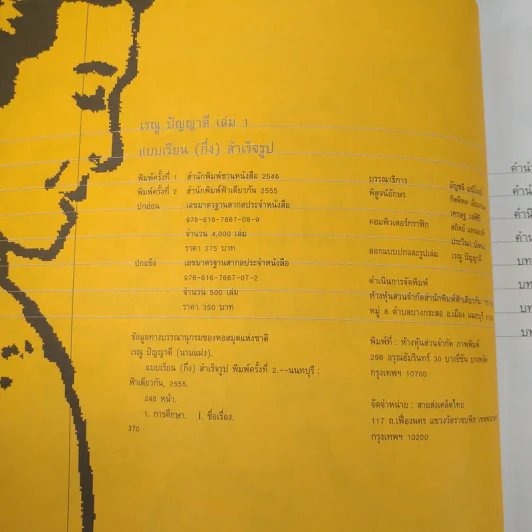 เรณู ปัญญาดี เล่ม 1
แบบเรียน (กึ่ง) สำเร็จรูป
พิมพ์ครั้งที่ 1 สำนักพิมพ์ชานหนังสือ 2546
พิมพ์ครั้งที่ 2 สำนักพิมพ์ฟ้าเดียวกัน 2555
ปกอ่อน เลขมาตรฐานสากลประจำหนังสือ
978-616-7667-08-9
จำนวน 4,000 เล่ม
ราคา 275 บาท
ปกแข็ง เลขมาตรฐานสากลประจำหนังสือ
978-616-7667-07-2
จำนวน 500 เล่ม
ราคา 350 บาท
ข้อมูลทางบรรณานุกรมของหอสมุดแห่งชาติ
เรณู ปัญญาดี (นามแฝง).
แบบเรียน (กึ่ง) สำเร็จรูป พิมพ์ครั้งที่ 2.--นนทบุรี :
ฟ้าเดียวกัน, 2555.
248 หน้า.
1. การศึกษา. I. ชื่อเรื่อง.
370
บรรณาธิการ
พิสูจน์อักษร
คอมพิวเตอร์กราฟิก
ออกแบบปกและรูปเล่ม เรณู ปัญญาดี
ดำเนินการจัดพิมพ์
ห้างหุ้นส่วนจำกัดสำนักพิมพ์ฟ้าเดียวกัน
หมู่ 8 ตำบลบางกระสอ อ.เมือง นนทบุรี
พิมพ์ที่ : ห้างหุ้นส่วนจำกัด ภาพพิมพ์
296 อรุณอัมรินทร์ 30 บางยี่ขัน บางพลัด
กรุงเทพฯ 10700
จัดจำหน่าย : สายส่งเคล็ดไทย
117 ถ.เฟื่องนคร แขวงวัดราชบพิธ
กรุงเทพฯ 10200